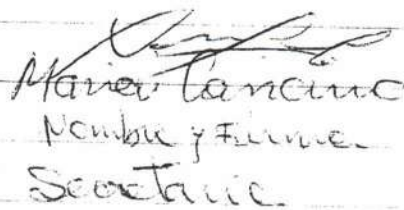 Maria Cancino
Nombre y Firma
Secretaria